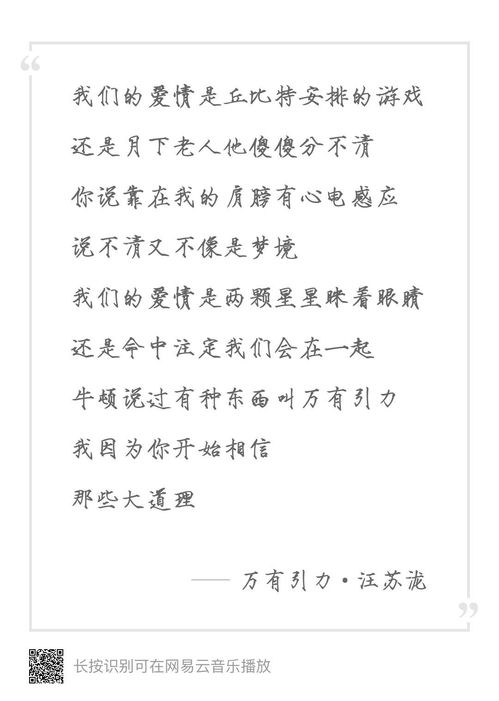 “
我们的爱情是丘比特安排的游戏
还是月下老人他傻傻分不清
你说靠在我的肩膀有心电感应
说不清又不像是梦境
我们的爱情是两颗星星眯着眼睛
还是命中注定我们会在一起
牛顿说过有种东西叫万有引力
我因为你开始相信
那些大道理
—— 万有引力·汪苏泷
”
长按识别可在网易云音乐播放